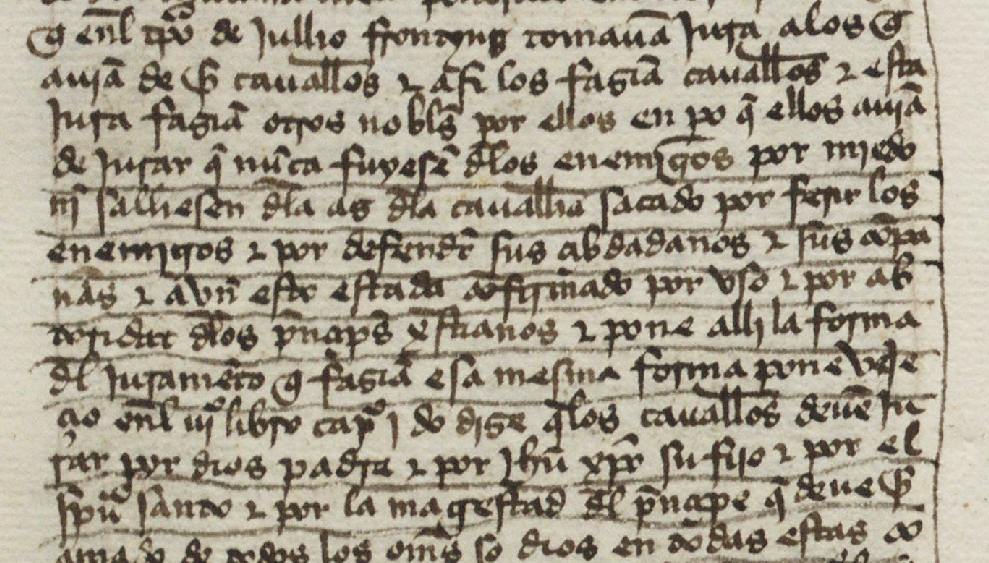 q̃ enl̃ tpõ de Jullio frontynꝯ tomauã Jura alos q̃
auiã de ser̃ cauall̃os ⁊ asi los fagiã cauall̃os ⁊ esta
Jura fagiã otros nobl̃s por ellos en po q̃ ellos auiã
de Jurar q̃ nũca fuyesẽ dl̃os enemigos por miedo
nj̃ salliesen dl̃a dl̃a cauall̃ia sacado por ferir los
enemigos ⁊ por defendr̃ sus abdadanos ⁊ sus cõpa
nãs ⁊ avñ esto estada cõfirmado por vso ⁊ por ab
toridat dl̃os p̃ncip̃s xp̃stianos ⁊ pone alli la forma
dl̃ Juramẽto q̃ fagiã esa mesma forma pone vege
cio enl̃ iijº libro capº j do dize q̃los cauall̃os deuẽ Ju
rar por dios padre ⁊ por Jhũ xp̃o su fijo ⁊ por el
sp̃u santo ⁊ por la magestad dl̃ p̃ncipe q̃ deue ser̃
amado de todos los om̃s so dios en todas estas co